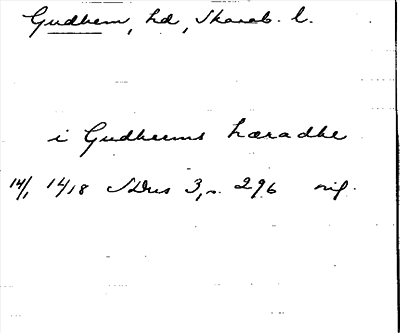 Gudhem, hd, Skarab. l.
i Gudhems hæradhe
14/1 1418 SDns 3, s. 296 orig.